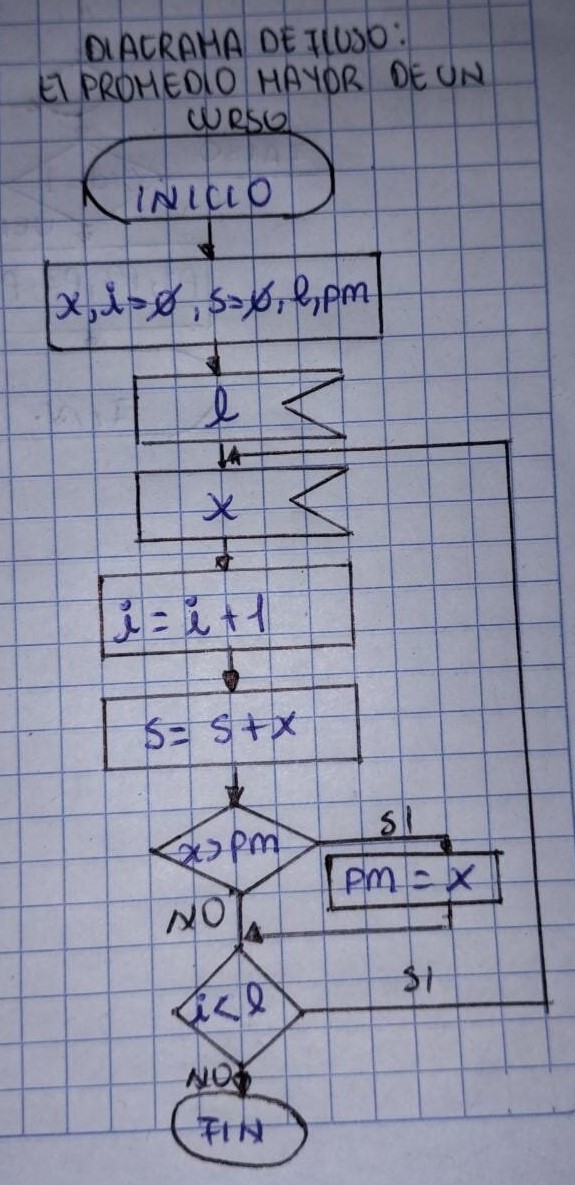 DIAGRAMA DE FLUJO:
El PROMEDIO MAYOR DE UN
CURSO
INICIO
x, i=0, s=0, l, pm
l
x
i = i + 1
s = s + x
x>pm
SI
pm = x
NO
i < l
SI
NO
FIN